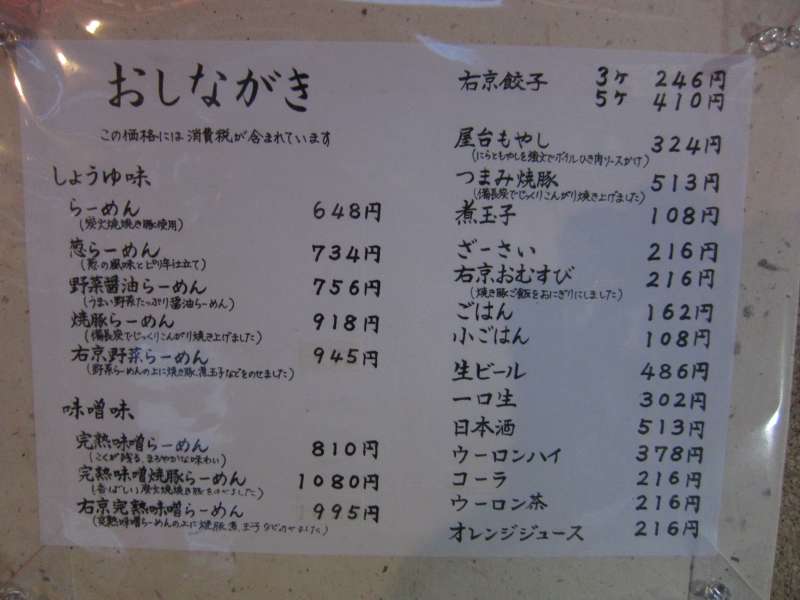 おしながき
この価格には消費税が含まれています
しょうゆ味
らーめん 648円
(炭火焼焼き豚使用)
葱らーめん 734円
(葱の風味とピリ辛仕立て)
野菜醤油らーめん 756円
(うまい野菜たっぷり醤油らーめん)
焼豚らーめん 918円
(備長炭でじっくりこんがり焼き上げました)
右京野菜らーめん 945円
(野菜らーめんの上に焼き豚、煮玉子などをのせました)
味噌味
完熟味噌らーめん 810円
(こくが残る、まろやかな味わい)
完熟味噌焼豚らーめん 1080円
(香ばしい炭火焼焼き豚をのせました)
右京完熟味噌らーめん 995円
(完熟味噌らーめんの上に焼豚、煮玉子などのせました)
右京餃子 3ケ 246円
5ケ 410円
屋台もやし 324円
(にらともやしを強火でボイルひき肉ソースがけ)
つまみ焼豚 513円
(備長炭でじっくりこんがり焼き上げました)
煮玉子 108円
ざーさい 216円
右京おむすび 216円
(焼き豚ご飯をおにぎりにしました)
ごはん 162円
小ごはん 108円
生ビール 486円
一口生 302円
日本酒 513円
ウーロンハイ 378円
コーラ 216円
ウーロン茶 216円
オレンジジュース 216円